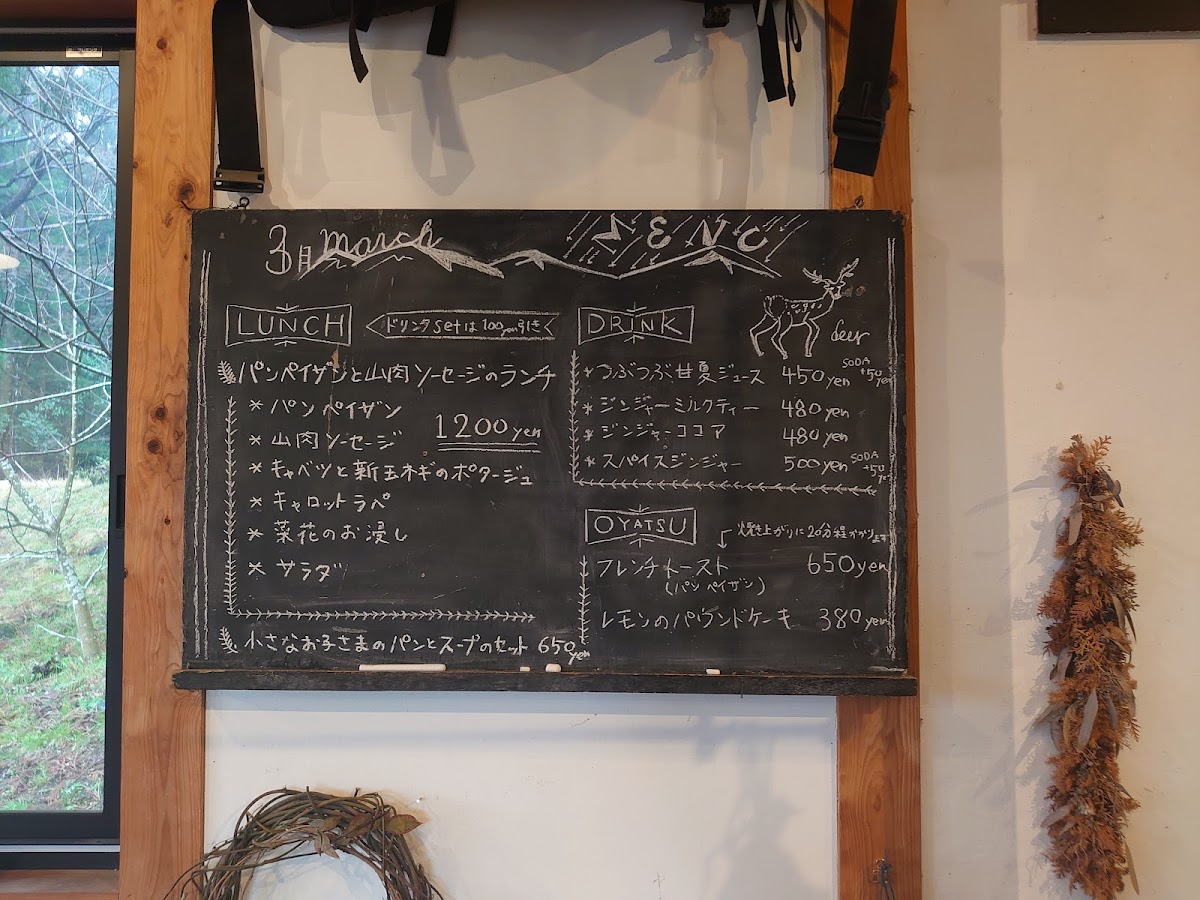 3月 march
MENU
LUNCH
ドリンクsetは100yen引き
パンペイザンと山肉ソーセージのランチ
* パンペイザン
* 山肉ソーセージ
1200yen
* キャベツと新玉ネギのポタージュ
* キャロットラペ
* 菜花のお浸し
* サラダ
小さなお子さまのパンとスープのセット 650yen
DRINK
deer
* つぶつぶ甘夏ジュース 450yen SODA +50yen
* ジンジャーミルクティー 480yen
* ジンジャーココア 480yen
* スパイスジンジャー 500yen SODA +50y
OYATSU
焼き上がりに20分程かかります
フレンチトースト 650yen
(パンペイザン)
レモンのパウンドケーキ 380yen